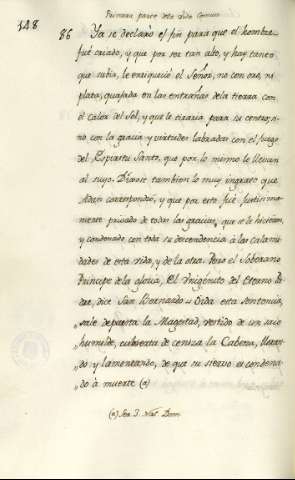 Primera parte de la vida Comun
148
86 Ya se declaró el fin para que el hombre
fué criado, y que por ser tan alto, y hay tanto
que subir, le enriqueció el Señor, no con oro, ni
plata, quajada en las entrañas de la tierra con
el calor del Sol, y que le tiraria para su centro, si-
nó con la gracia y virtudes labradas con el fuego
del Espiritu Santo, que por lo mismo le llevan
al suyo. Dixose tambien lo muy ingrato que
Adan correspondió, y que por esto fué justisima-
mente privado de todas las gracias, que se le hicieron,
y condenado con toda su descendencia à las calami-
dades de esta vida, y de la otra. Pero el Soberano
Principe de la gloria, El Vnigénito del Eterno Pa-
dre, dice San Bernardo: Oida esta sentencia,
sale depuesta la Magestad, vestido de un saco
humilde, cubierta de ceniza la Cabeza, lloran-
do y lamentando, de que su siervo es condena-
do à muerte (a)
(a) Ser. I. Nat. Dom.